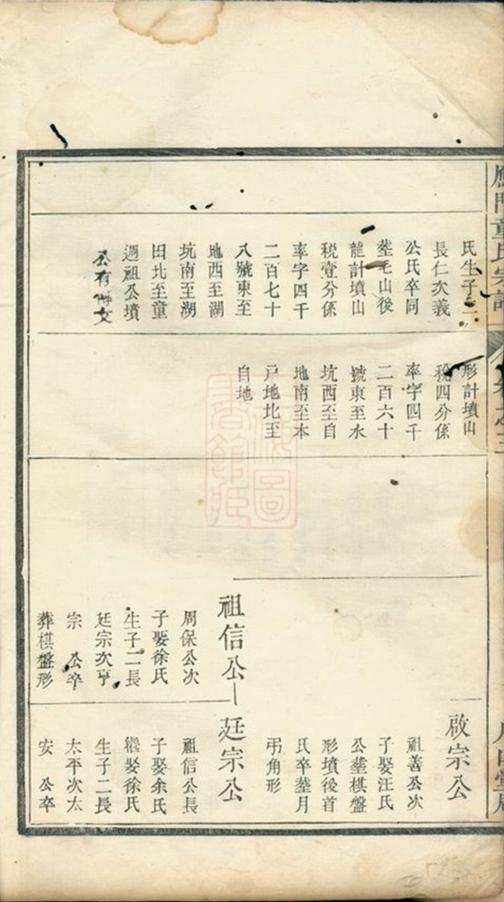 氏生子二
長仁次義
公氏卒同
塟毛山後
龍計墳山
税壹分係
率字四千
二百七十
八號東至
地西至湖
坑南至湖
田北至童
週祖公墳
公有傳文
形計墳山
税四分係
率字四千
二百六十
號東至水
坑西至自
地南至本
戸地北至
自地
啟宗公
祖善公次
子娶汪氏
公塟棋盤
形墳後首
氏卒塟月
弔角形
祖信公
周保公次
子娶徐氏
生子二長
廷宗次亨
宗 公卒
葬棋盤形
廷宗公
祖信公長
子娶余氏
繼娶徐氏
生子二長
太平次太
安 公卒